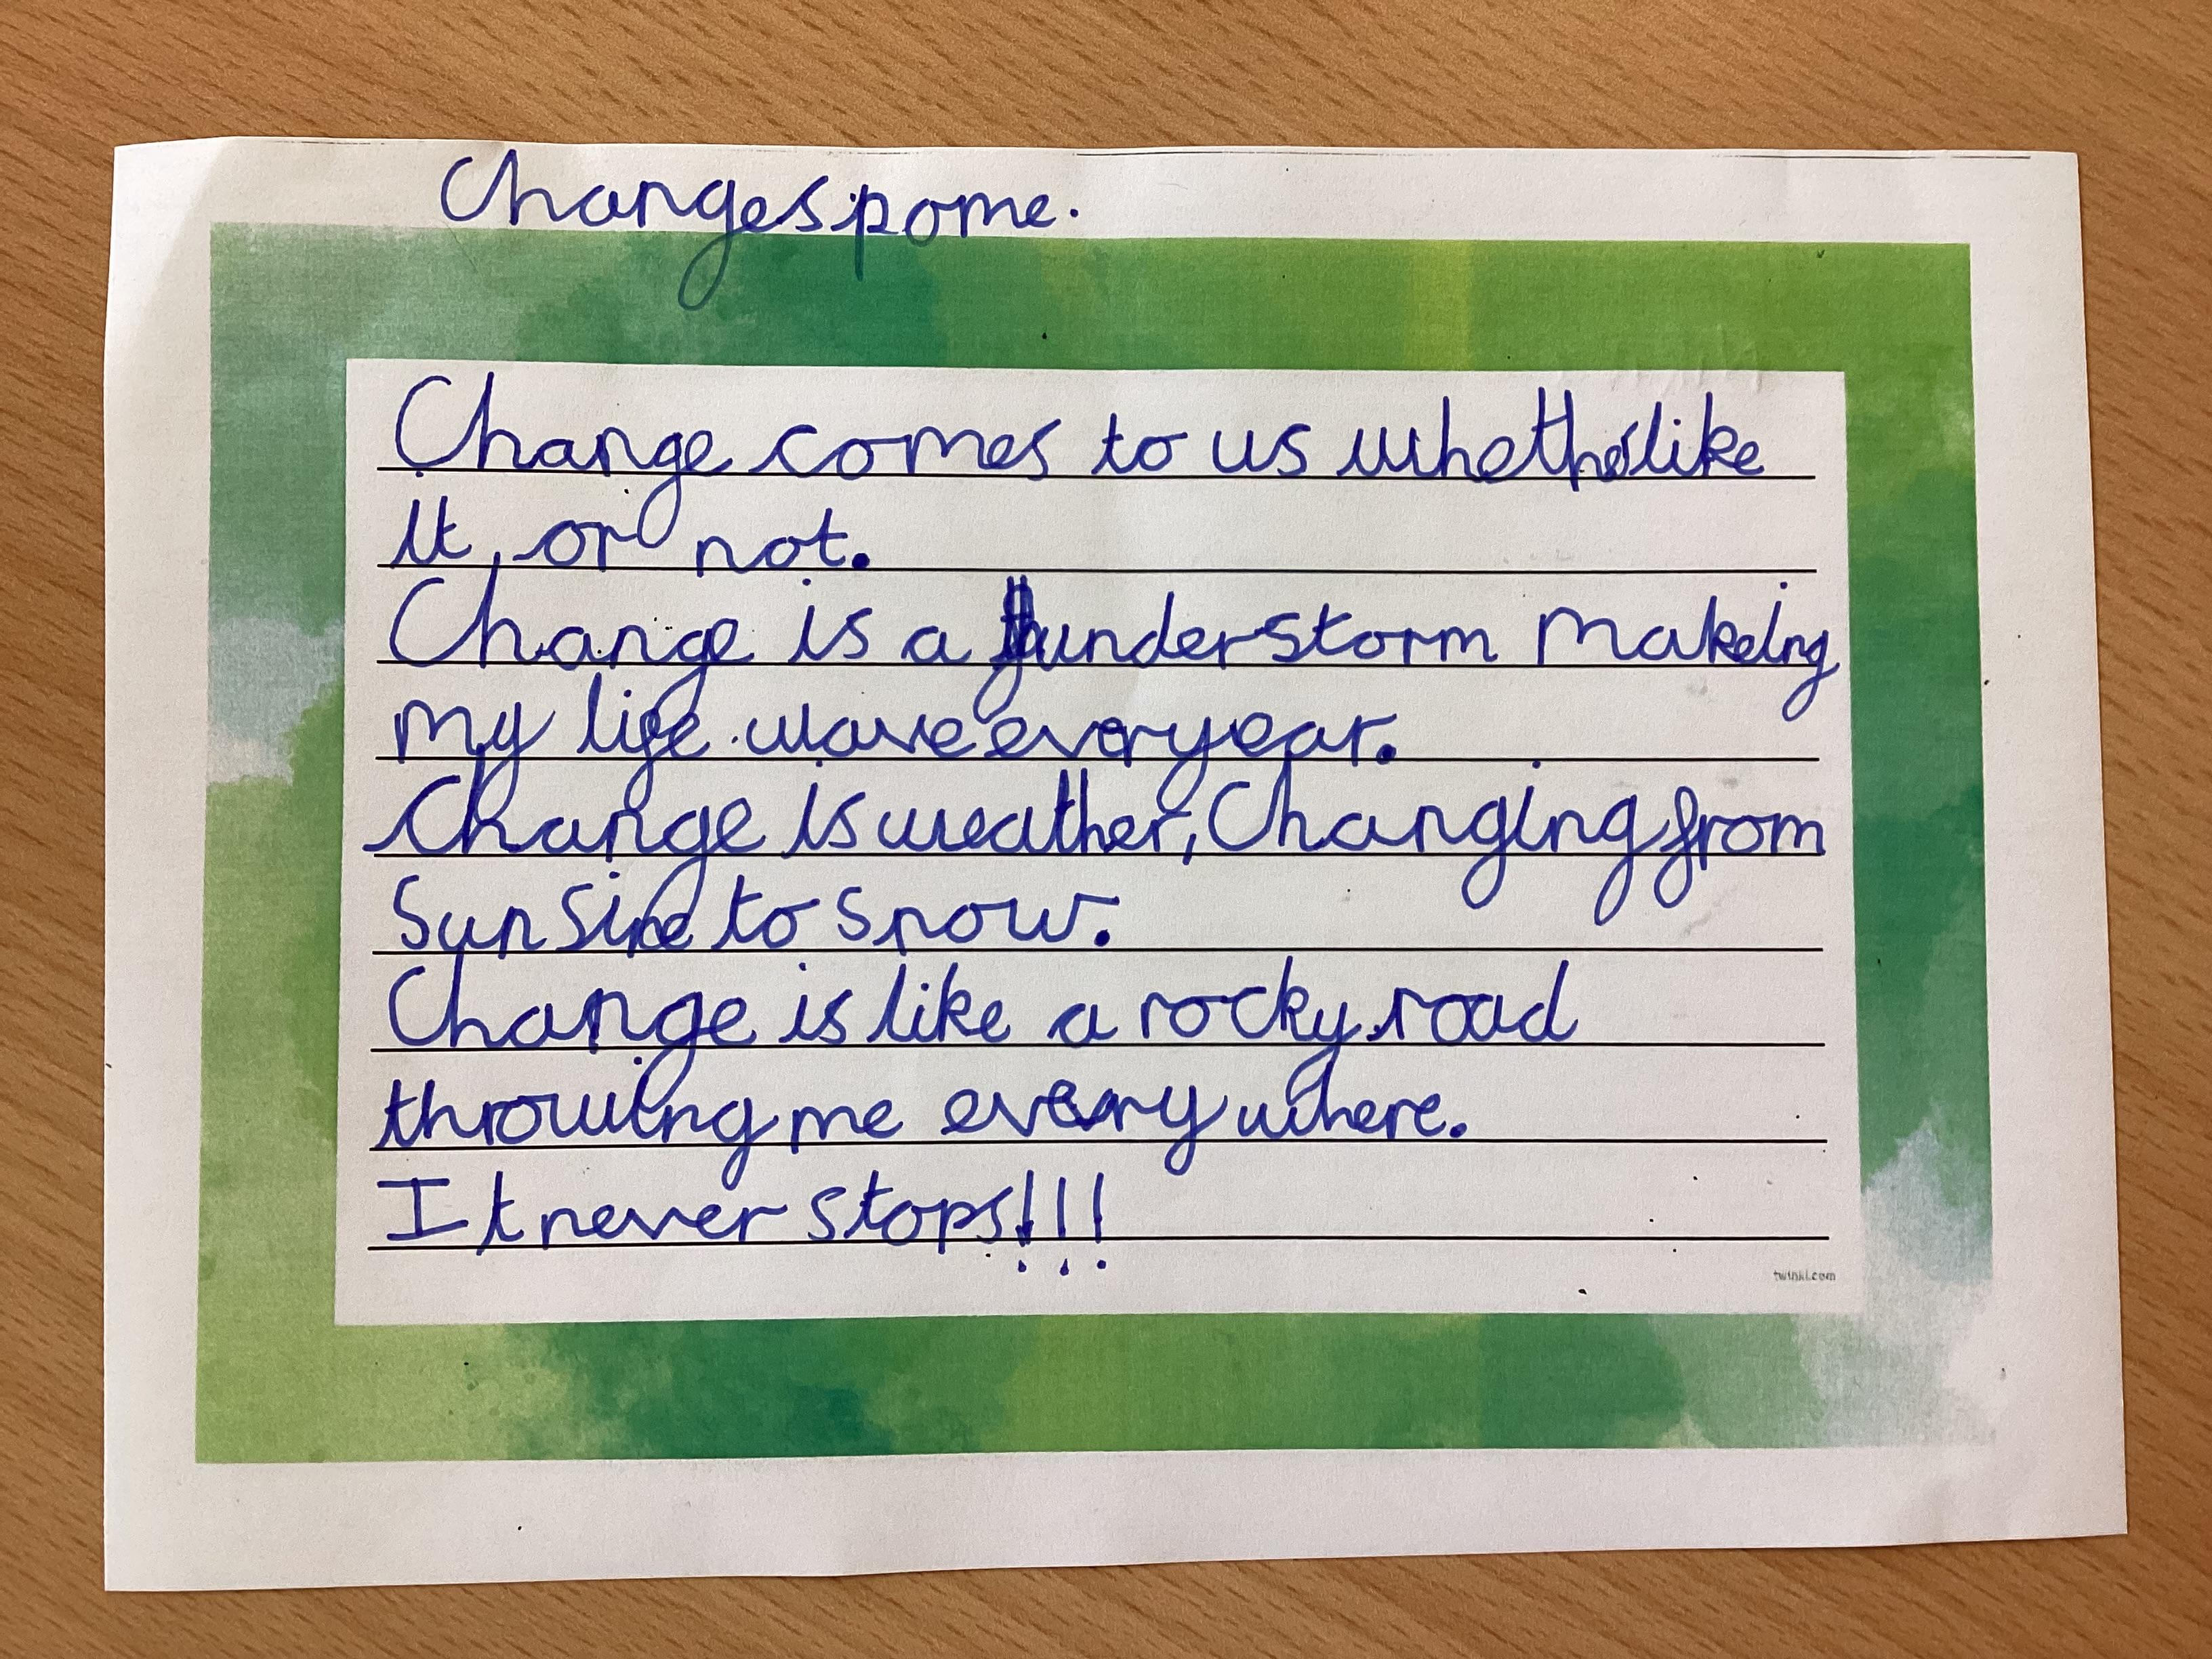 Changes pome.
Change comes to us whether like
it or not.
Change is a thunder storm makeing
my life wave every ear.
Change is weather, Changing from
Sun Sine to Snow.
Change is like a rocky road
throwing me every where.
It never stops!!!
twinkl.com